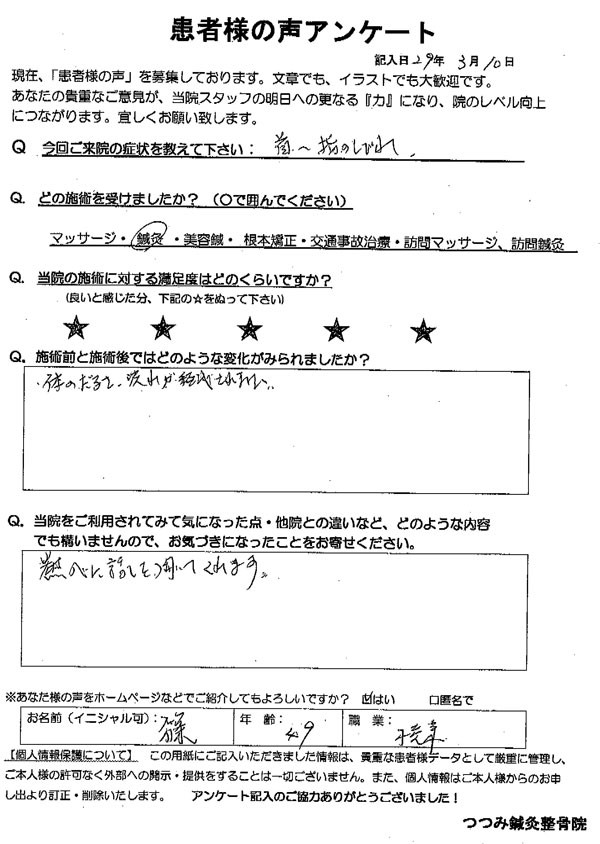 患者様の声アンケート
記入日29年 3月10日
現在、「患者様の声」を募集しております。文章でも、イラストでも大歓迎です。
あなたの貴重なご意見が、当院スタッフの明日への更なる『力』になり、院のレベル向上
につながります。宜しくお願い致します。
Q 今回ご来院の症状を教えて下さい： 首〜指のしびれ
Q. どの施術を受けましたか？（〇で囲んでください）
マッサージ・鍼灸・美容鍼・根本矯正・交通事故治療・訪問マッサージ、訪問鍼灸
Q. 当院の施術に対する満足度はどのくらいですか？
(良いと感じた分、下記の☆をぬって下さい)
Q. 施術前と施術後ではどのような変化がみられましたか？
・体のだるさ、疲れが軽減されました。
Q. 当院をご利用されてみて気になった点・他院との違いなど、どのような内容
でも構いませんので、お気づきになったことをお寄せください。
熱心に話しを聞いてくれます。
※あなた様の声をホームページなどでご紹介してもよろしいですか？ ☑はい □匿名で
お名前（イニシャル可）： 年 齢： 49 職 業：
【個人情報保護について】 この用紙にご記入いただきました情報は、貴重な患者様データとして厳重に管理し、
ご本人様の許可なく外部への開示・提供をすることは一切ございません。また、個人情報はご本人様からのお申
し出より訂正・削除いたします。 アンケート記入のご協力ありがとうございました！
つつみ鍼灸整骨院